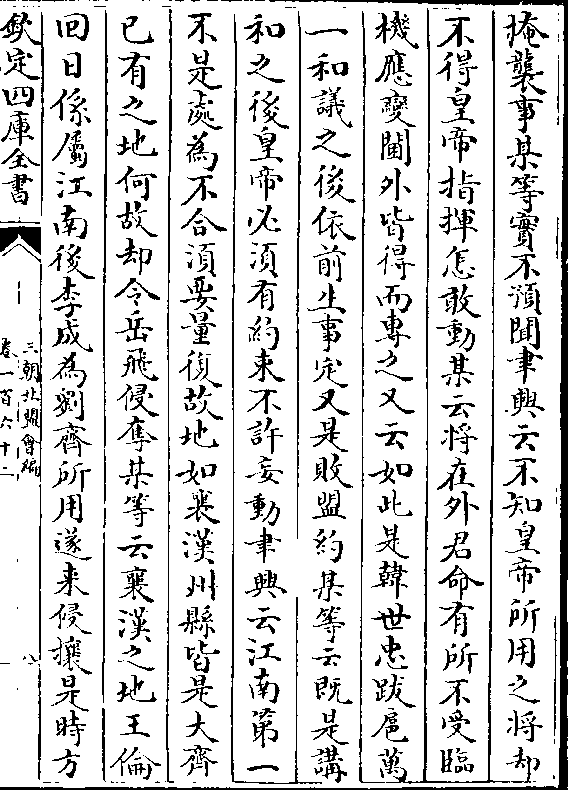 掩襲事某等實不預聞聿興云不知皇帝所用之將却
不得皇帝指揮怎敢動某云將在外君命有所不受臨
機應變閫外皆得而專之又云如此是韓世忠跋扈萬
一和議之後依前生事定又是敗盟約某等云既是講
和之後皇帝必須有約束不許妄動聿興云江南第一
不是處為不合須要量復故地如襄漢州縣皆是大齊
已有之地何故却令岳飛侵奪某等云襄漢之地王倫
回日係屬江南後李成為劉齊所用遂来侵擾是時方
欽定四庫全書
三朝北盟會編
卷一百六十二
八